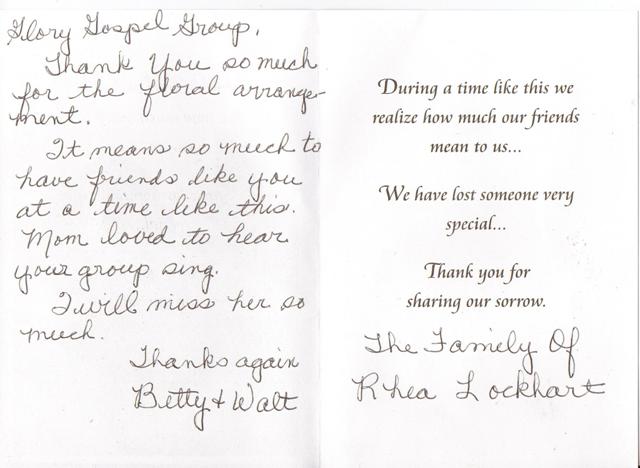 Glory Gospel Group,
Thank You so much
for the floral arrange-
ment.
It means so much to
have friends like you
at a time like this.
Mom loved to hear
your group sing.
I will miss her so
much.
Thanks again
Betty & Walt
During a time like this we
realize how much our friends
mean to us...
We have lost someone very
special...
Thank you for
sharing our sorrow.
The Family Of
Rhea Lockhart